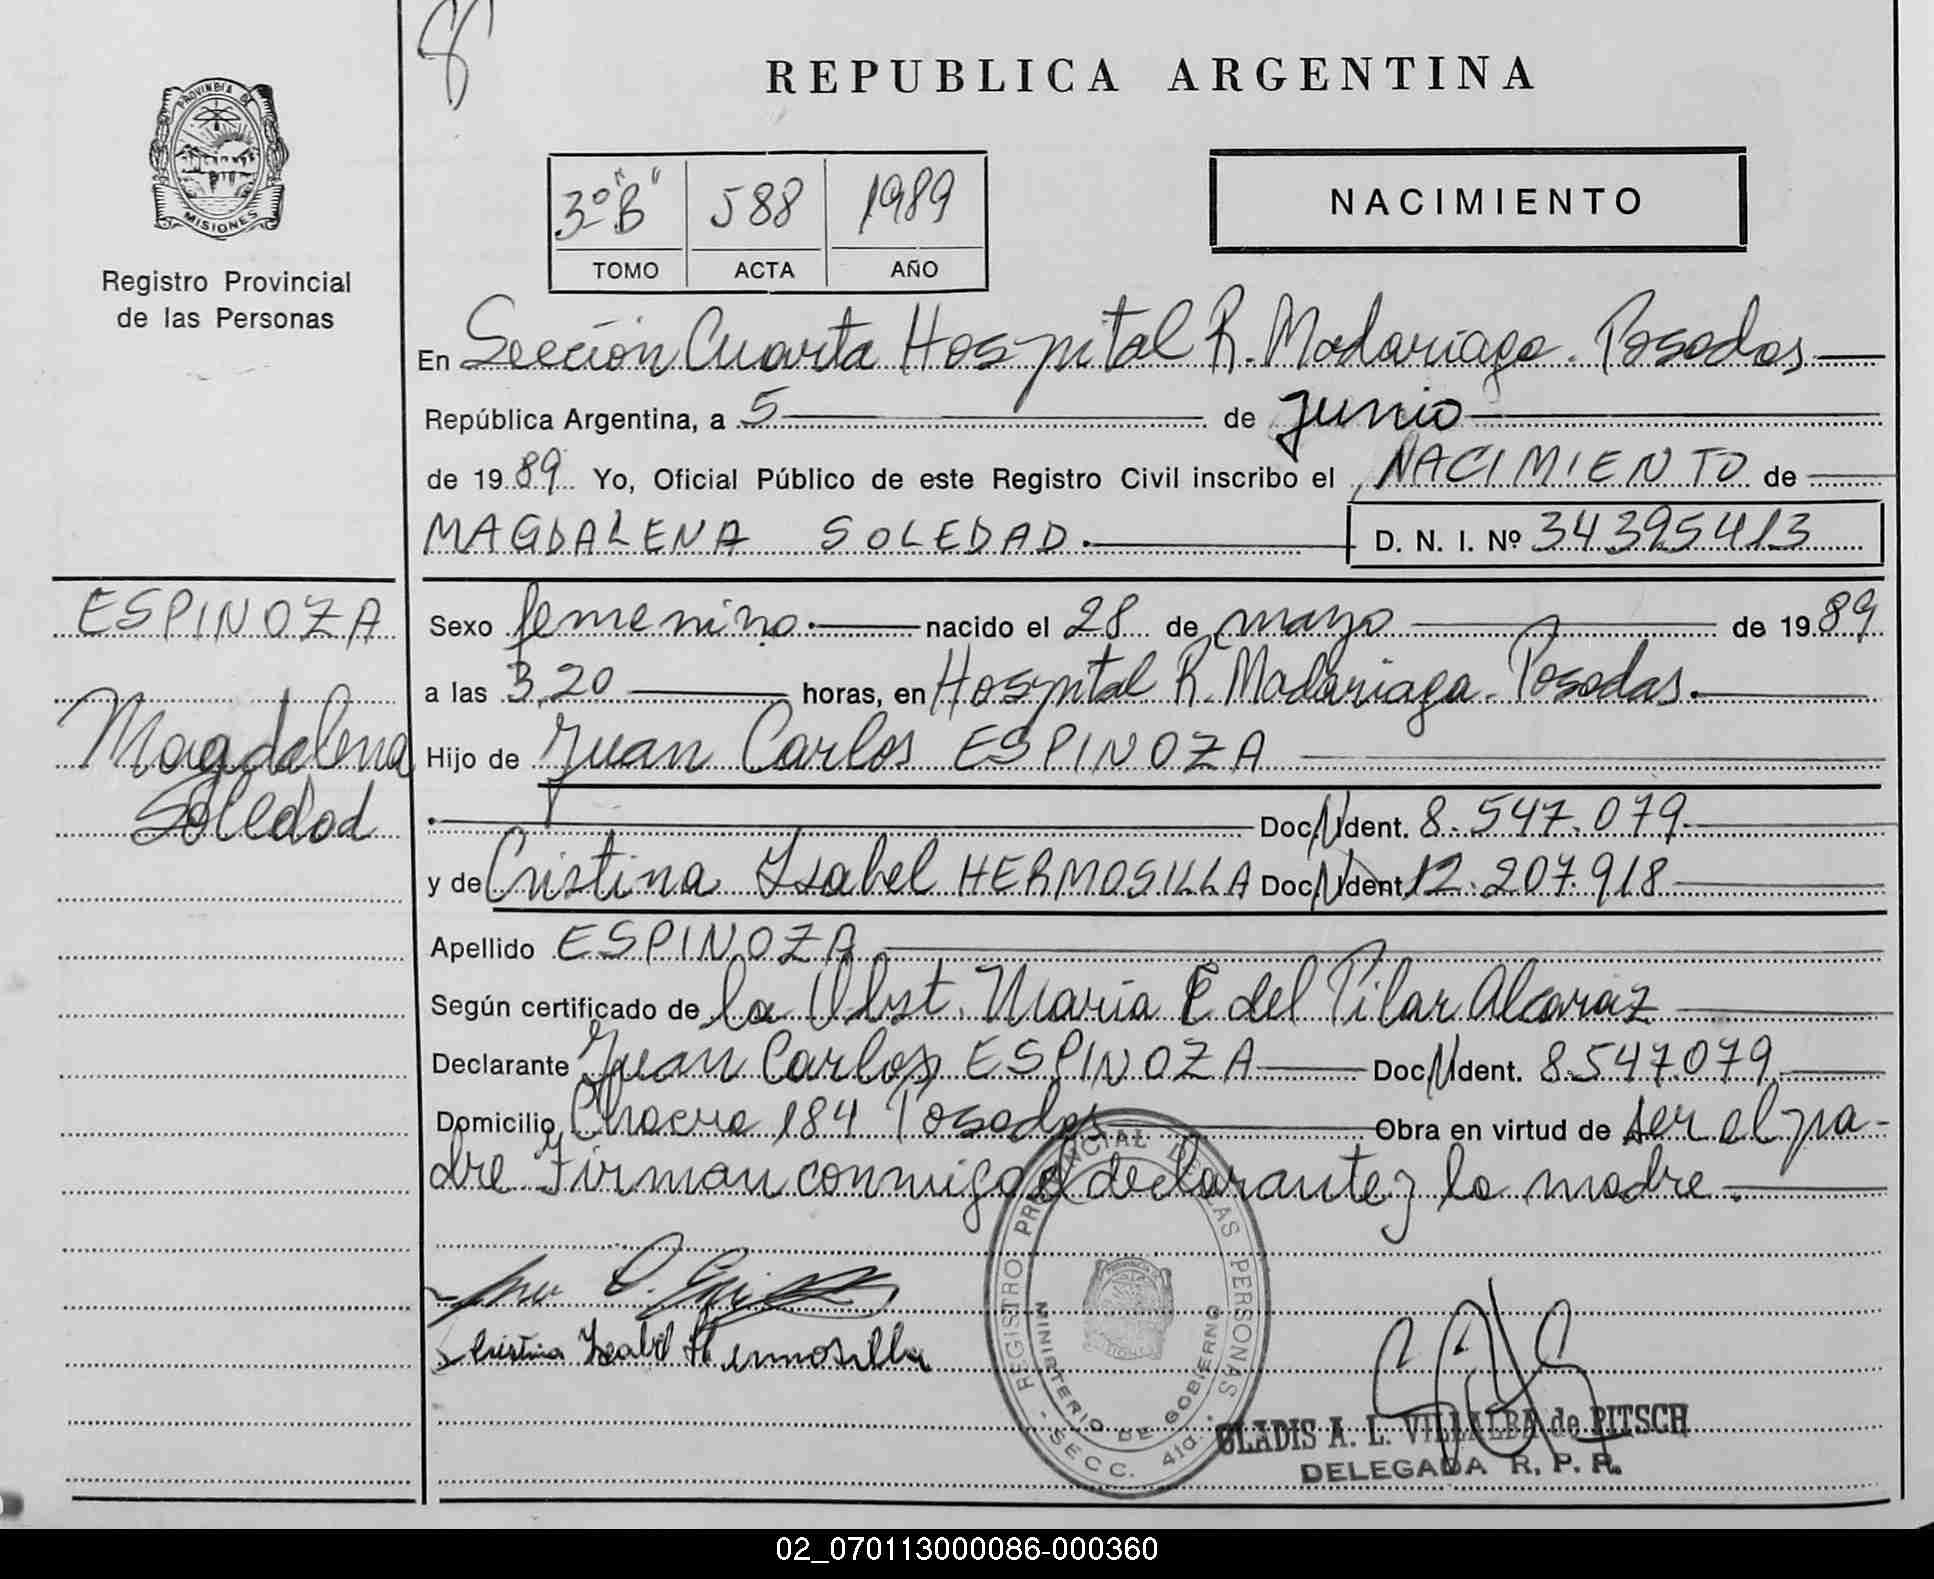 8
REPUBLICA ARGENTINA
PROVINCIA DE
MISIONES
Registro Provincial
de las Personas
3º "B" 588 1989
TOMO ACTA AÑO
NACIMIENTO
En Sección Cuarta Hospital R. Madariaga. Posadas
República Argentina, a 5 de junio
de 1989 Yo, Oficial Público de este Registro Civil inscribo el NACIMIENTO de
MAGDALENA SOLEDAD. D. N. I. Nº 34395413
ESPINOZA
Magdalena
Soledad
Sexo femenino. nacido el 28 de mayo de 1989
a las 3,20 horas, en Hospital R. Madariaga. Posadas.
Hijo de Juan Carlos ESPINOZA
Doc. Ident. 8.547.079
y de Cristina Isabel HERMOSILLA Doc. Ident. 12.207.918
Apellido ESPINOZA
Según certificado de la Obst. Maria E del Pilar Alcaraz
Declarante Juan Carlos ESPINOZA Doc. Ident. 8.547.079
Domicilio Chacra 184 Posadas Obra en virtud de ser el pa-
dre Firman conmigo el declarante y la madre.
Cristina Isabel Hermosilla
REGISTRO PROVINCIAL DE LAS PERSONAS
MINISTERIO DE GOBIERNO
SECC. 4ta.
GLADIS A. L. VILLALBA de PITSCH
DELEGADA R. P. P.
02_070113000086-000360